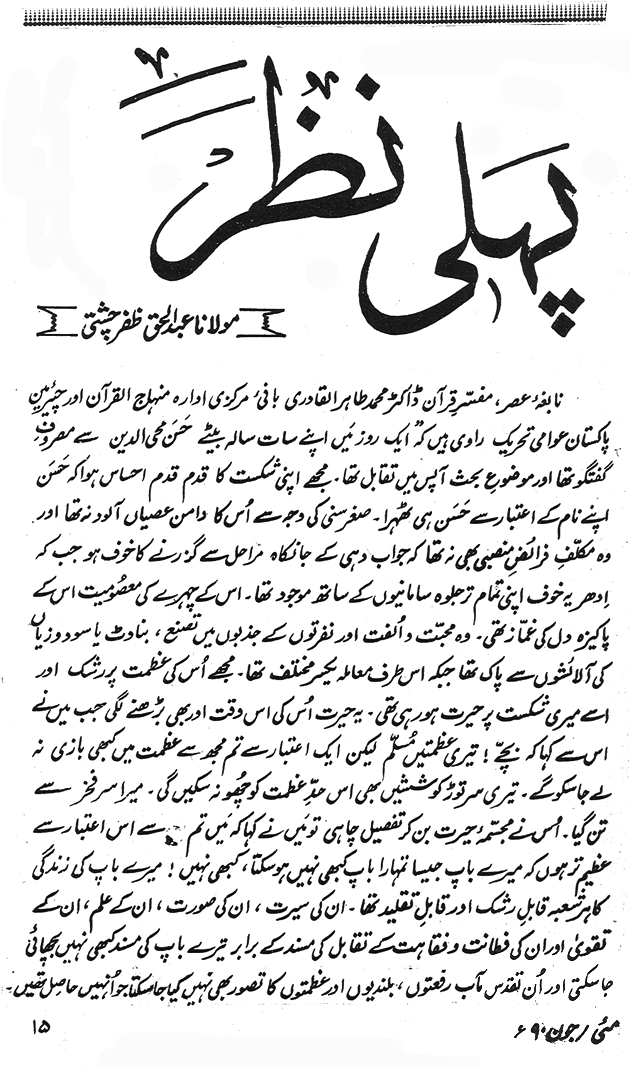 پہلی نظر
مولانا عبدالحق ظفر چشتی
نابغۂ عصر، مفسّرِ قرآن ڈاکٹر محمد طاہر القادری بانیٔ مرکزی ادارہ منہاج القرآن اور چیئرمین
پاکستان عوامی تحریک راوی ہیں کہ "ایک روز میں اپنے سات سالہ بیٹے حَسَن محی الدین سے مصروفِ
گفتگو تھا اور موضوعِ بحث آپس میں تقابل تھا۔ مجھے اپنی شکست کا قدم قدم احساس ہوا کہ حَسَن
اپنے نام کے اعتبار سے حَسَن ہی ٹھہرا۔ صغر سنی کی وجہ سے اُس کا دامن عصیاں آلود نہ تھا اور
وہ مکلّفِ فرائضِ منصبی بھی نہ تھا کہ جواب دہی کے جانکاہ مراحل سے گزرنے کا خوف ہو جب کہ
اِدھر یہ خوف اپنی تمام تر جلوہ سامانیوں کے ساتھ موجود تھا۔ اس کے چہرے کی معصومیت اس کے
پاکیزہ دل کی غمّاز تھی۔ وہ محبّت و اُلفت اور نفرتوں کے جذبوں میں تصنع، بناوٹ یا سود و زیاں
کی آلائشوں سے پاک تھا جبکہ اس طرف معاملہ یکسر مختلف تھا۔ مجھے اُس کی عظمت پر رشک اور
اسے میری شکست پر حیرت ہو رہی تھی۔ یہ حیرت اُس کی اس وقت اور بھی بڑھنے لگی جب میں نے
اس سے کہا کہ بچّے! تیری عظمتیں مُسلّم لیکن ایک اعتبار سے تم مجھ سے عظمت میں کبھی بازی نہ
لے جا سکو گے۔ تیری سر توڑ کوششیں بھی اس حدِّ عظمت کو چُھو نہ سکیں گی۔ میرا سر فخر سے
تن گیا۔ اُس نے مجسّمۂ حیرت بن کر تفصیل چاہی تو میں نے کہا کہ میں تم سے اس اعتبار سے
عظیم تر ہوں کہ میرے باپ جیسا تمہارا باپ کبھی نہیں ہو سکتا، کبھی نہیں! میرے باپ کی زندگی
کا ہر شعبہ قابلِ رشک اور قابلِ تقلید تھا۔ ان کی سیرت، ان کی صورت، ان کے علم، ان کے
تقویٰ اور ان کی فطانت و فقاہت کے تقابل کی مسند کے برابر تیرے باپ کی مسند کبھی نہیں بچھائی
جا سکتی اور اُن تقدّس مآب رفعتوں، بلندیوں اور عظمتوں کا تصور بھی نہیں کیا جا سکتا جو اُنہیں حاصل تھیں۔
مئی / جون ۹۰ء
۱۵